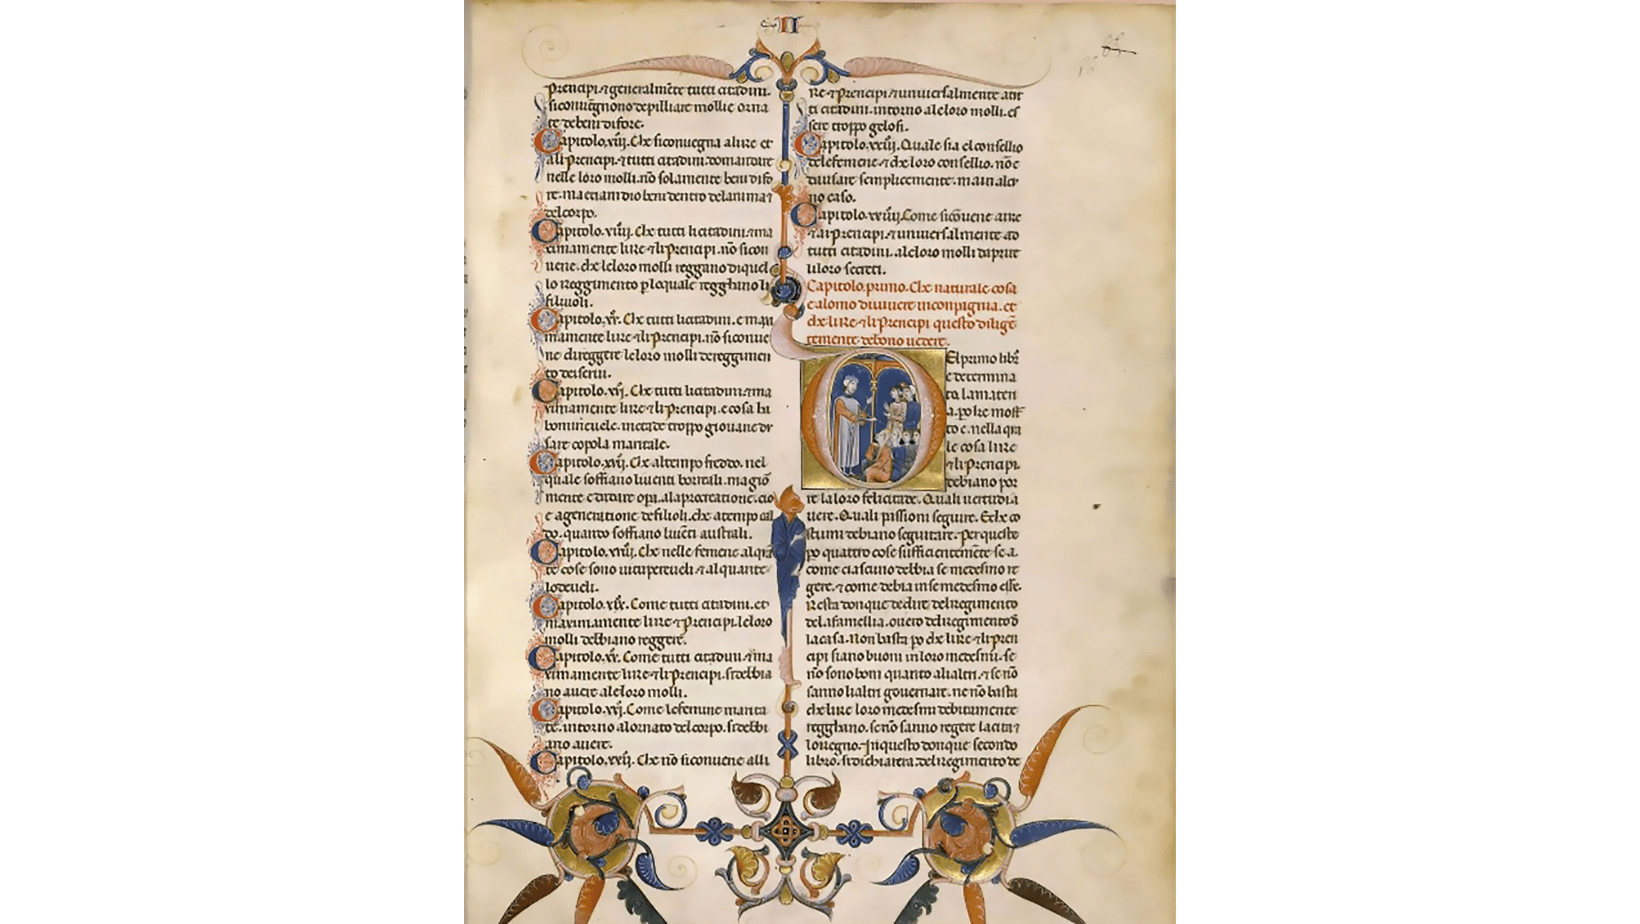 II
Principi. ⁊ generalmēte tutti citadini.
si conuēgnono de pilliare mollie orna
te de beni di fore.
Capitolo. xiiij. Che si conuegna a li re et
a li Principi. ⁊ tutti citadini. domandare
nelle loro molli. nō solamente beni di fo
re. ma etiandio beni dentro de l anima ⁊
del corpo.
Capitolo. xiiij. Che tutti li citadini. ⁊ ma
ximamente li re ⁊ li Principi. nō si con
uene. che le loro molli reggano di quel
lo reggimento p lo quale regghano li
filiuoli.
Capitolo. xv. Che tutti li citadini. e maxi
mamente li re ⁊ li Principi. nō si conue
ne di reggere le loro molli de reggimen
to de i serui.
Capitolo. xvj. Che tutti li citadini. ⁊ ma
ximamente li re ⁊ li Principi. e cosa bi
troppo giouane de
sare copola maritale.
Capitolo. xvij. Che al tempo freddo. nel
quale soffiano li uenti boreali. magior
mente e da dare opa. a la procreatione. cio
e a generatione de filioli. che a tempo cal
do. quanto soffiano li uēti australi.
Capitolo. xviij. Che nelle femene alqua
te cose sono uitupereuili ⁊ alquante
lodeueli.
Capitolo. xix. Come tutti citadini. et
maximamente li re ⁊ Principi. le loro
molli debbiano reggere.
Capitolo. xx. Come tutti citadini. ⁊ ma
ximamente li re ⁊ li Principi. si debbia
no auere a le loro molli.
Capitolo. xxj. Come le femine marita
te. intorno a l ornato del corpo. si debbi
ano auere.
Capitolo. xxij. Che nō si conuene alli
Re ⁊ Principi ⁊ uniuersalmente a tut
ti citadini. intorno a le loro molli. es
sere troppo gelosi.
Capitolo. xxiij. Quale sia el consellio
de le femene. ⁊ che loro consellio. nō e
da usare semplicemente. ma in alcu
no caso.
Capitolo. xxiiij. Come si cōuene a i re
⁊ a i Principi. ⁊ uniuersalmente ad
tutti citadini. a le loro molli d aprire
li loro secreti.
Capitolo. primo. Che naturale cosa
e a l omo di uiuere in conpignia. et
che li re ⁊ li Principi questo diligē
temente debono uedere.
El primo libro
e determina
ta la materi
a. po he most
to e. nella qua
le cosa li re
⁊ li Principi.
debiano por
re la loro felicitade. Quali uertudi a
uere. Quali passioni seguire. E che co
stumi debiano seguitare. Per queste
po quattro cose sufficientemēte se a.
come ciascuno debbia se medesimo re
gere. ⁊ come debia in se medesimo esse.
Resta donque de dire del regimento
de la famellia. ouero del regimento d
la casa. Non basta po che li re ⁊ li prin
cipi siano buoni in loro medesmi. se
nō sono boni quanto a li altri. ⁊ se nō
sanno li altri gouernare. ne nō basta
che li re loro medesmi debitamente
regghano. se nō sanno regere la cita ⁊
lo regno. In questo donque secondo
libro. si dichiarera. del regimento de